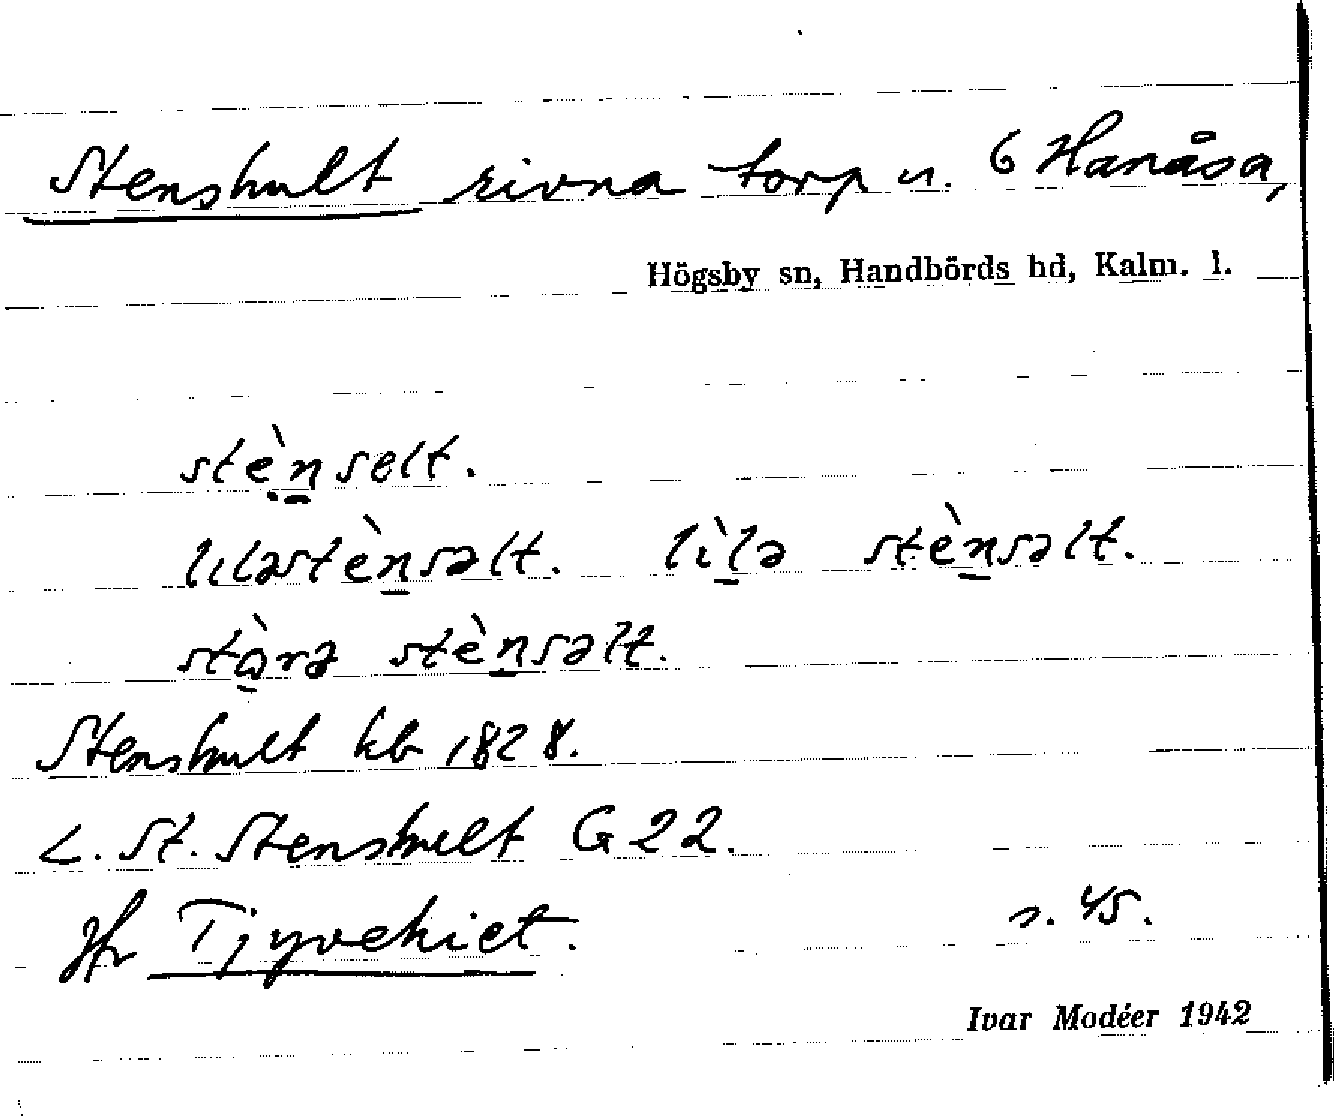 Stenshult rivna torp u. 6 Hanåsa,
Högsby sn, Handbörds hd, Kalm. l.
stè̱nselt.
lıləstèṉsəlt. lìḻə stèṉsəlt.
stàrə stèṉsəlt.
Stenshult kb 1828.
L. St. Stenshult G 22.
Jfr Tjyvekiet. s. 45.
Ivar Modéer 1942